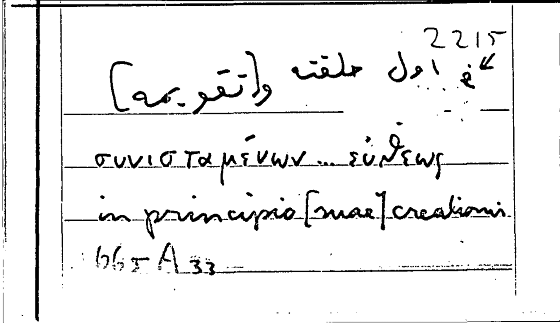 2215
في اول خلقته و[تقويمه]
συνισταμένων... εὐθέως
in principio [suae] creationis
665 A 33